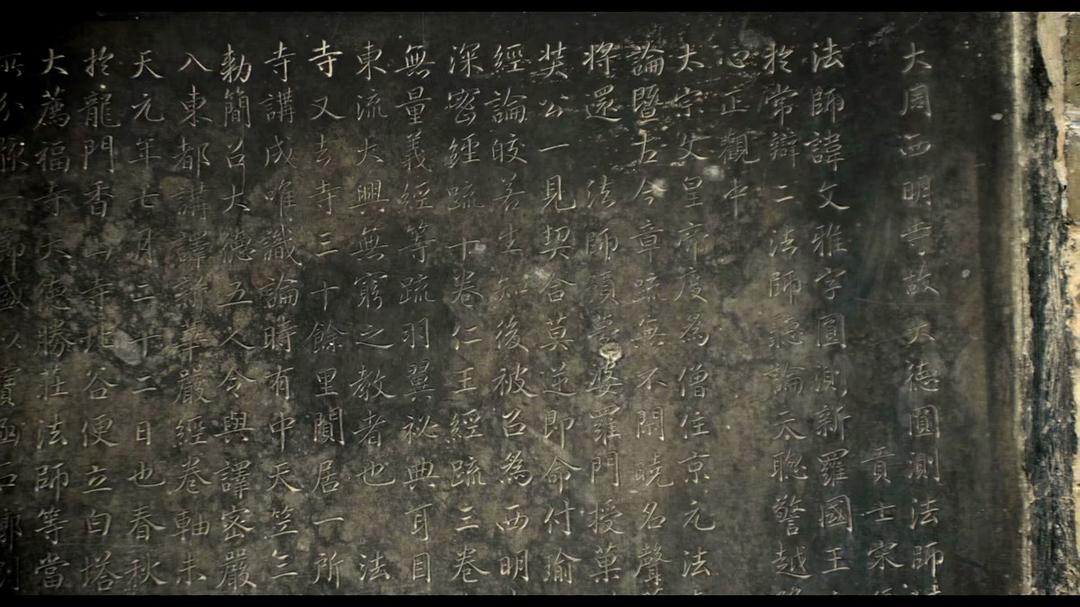 大周西明寺故大德圓測法師
貢士宋
法師諱文雅字圓測新羅國王
於常辯二法師聽論天聰警越
心正觀中
太宗文皇帝度為僧住京元法
論暨古今章疏無不閑曉名聲
將還 法師預夢婆羅門授菓
奘公一見契合莫逆即命付瑜
經論皎若生知後被召為西明
深密經疏十卷仁王經疏三卷
無量義經等疏羽翼祕典耳目
東流大興無窮之教者也 法
寺又去寺三十餘里闃居一所
寺講成唯識論時有中天竺三
勅簡召大德五人令與譯密嚴
入東都講譯新華嚴經卷軸未
天元年七月二十二日也春秋
於龍門香山寺北谷便立白塔
大薦福寺大德勝莊法師等當